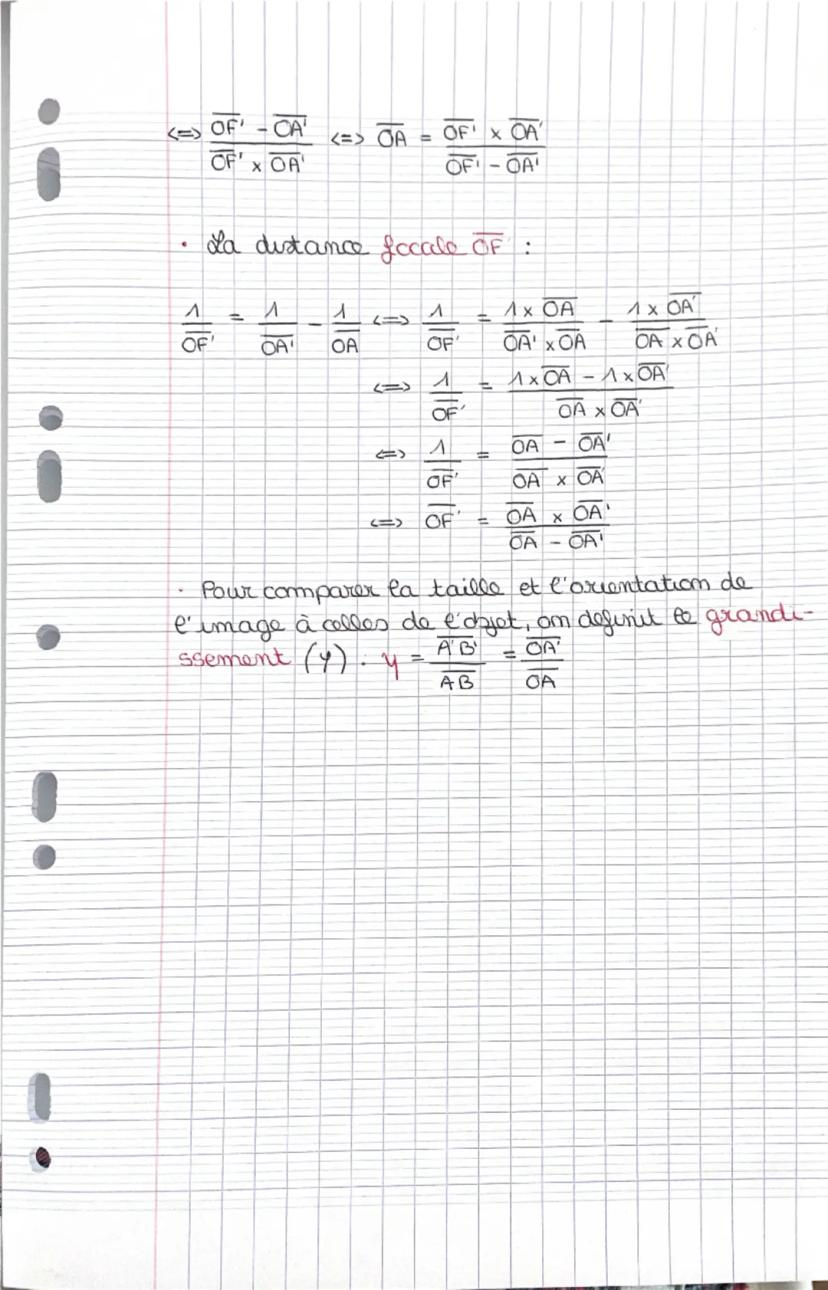 <=> (OF̅' - OA̅') / (OF̅' x OA̅') <=> OA̅ = (OF̅' x OA̅') / (OF̅' - OA̅')
· La distance focale OF̅' :
1/OF̅' = 1/OA̅' - 1/OA̅ <=> 1/OF̅' = (1 x OA̅) / (OA̅' x OA̅) - (1 x OA̅') / (OA̅ x OA̅')
<=> 1/OF̅' = (1 x OA̅ - 1 x OA̅') / (OA̅ x OA̅')
<=> 1/OF̅' = (OA̅ - OA̅') / (OA̅ x OA̅')
<=> OF̅' = (OA̅ x OA̅') / (OA̅ - OA̅')
· Pour comparer la taille et l'orientation de
l'image à celles de l'objet, on definit le grandi-
ssement (γ). γ = A̅'B̅' / A̅B̅ = OA̅' / OA̅